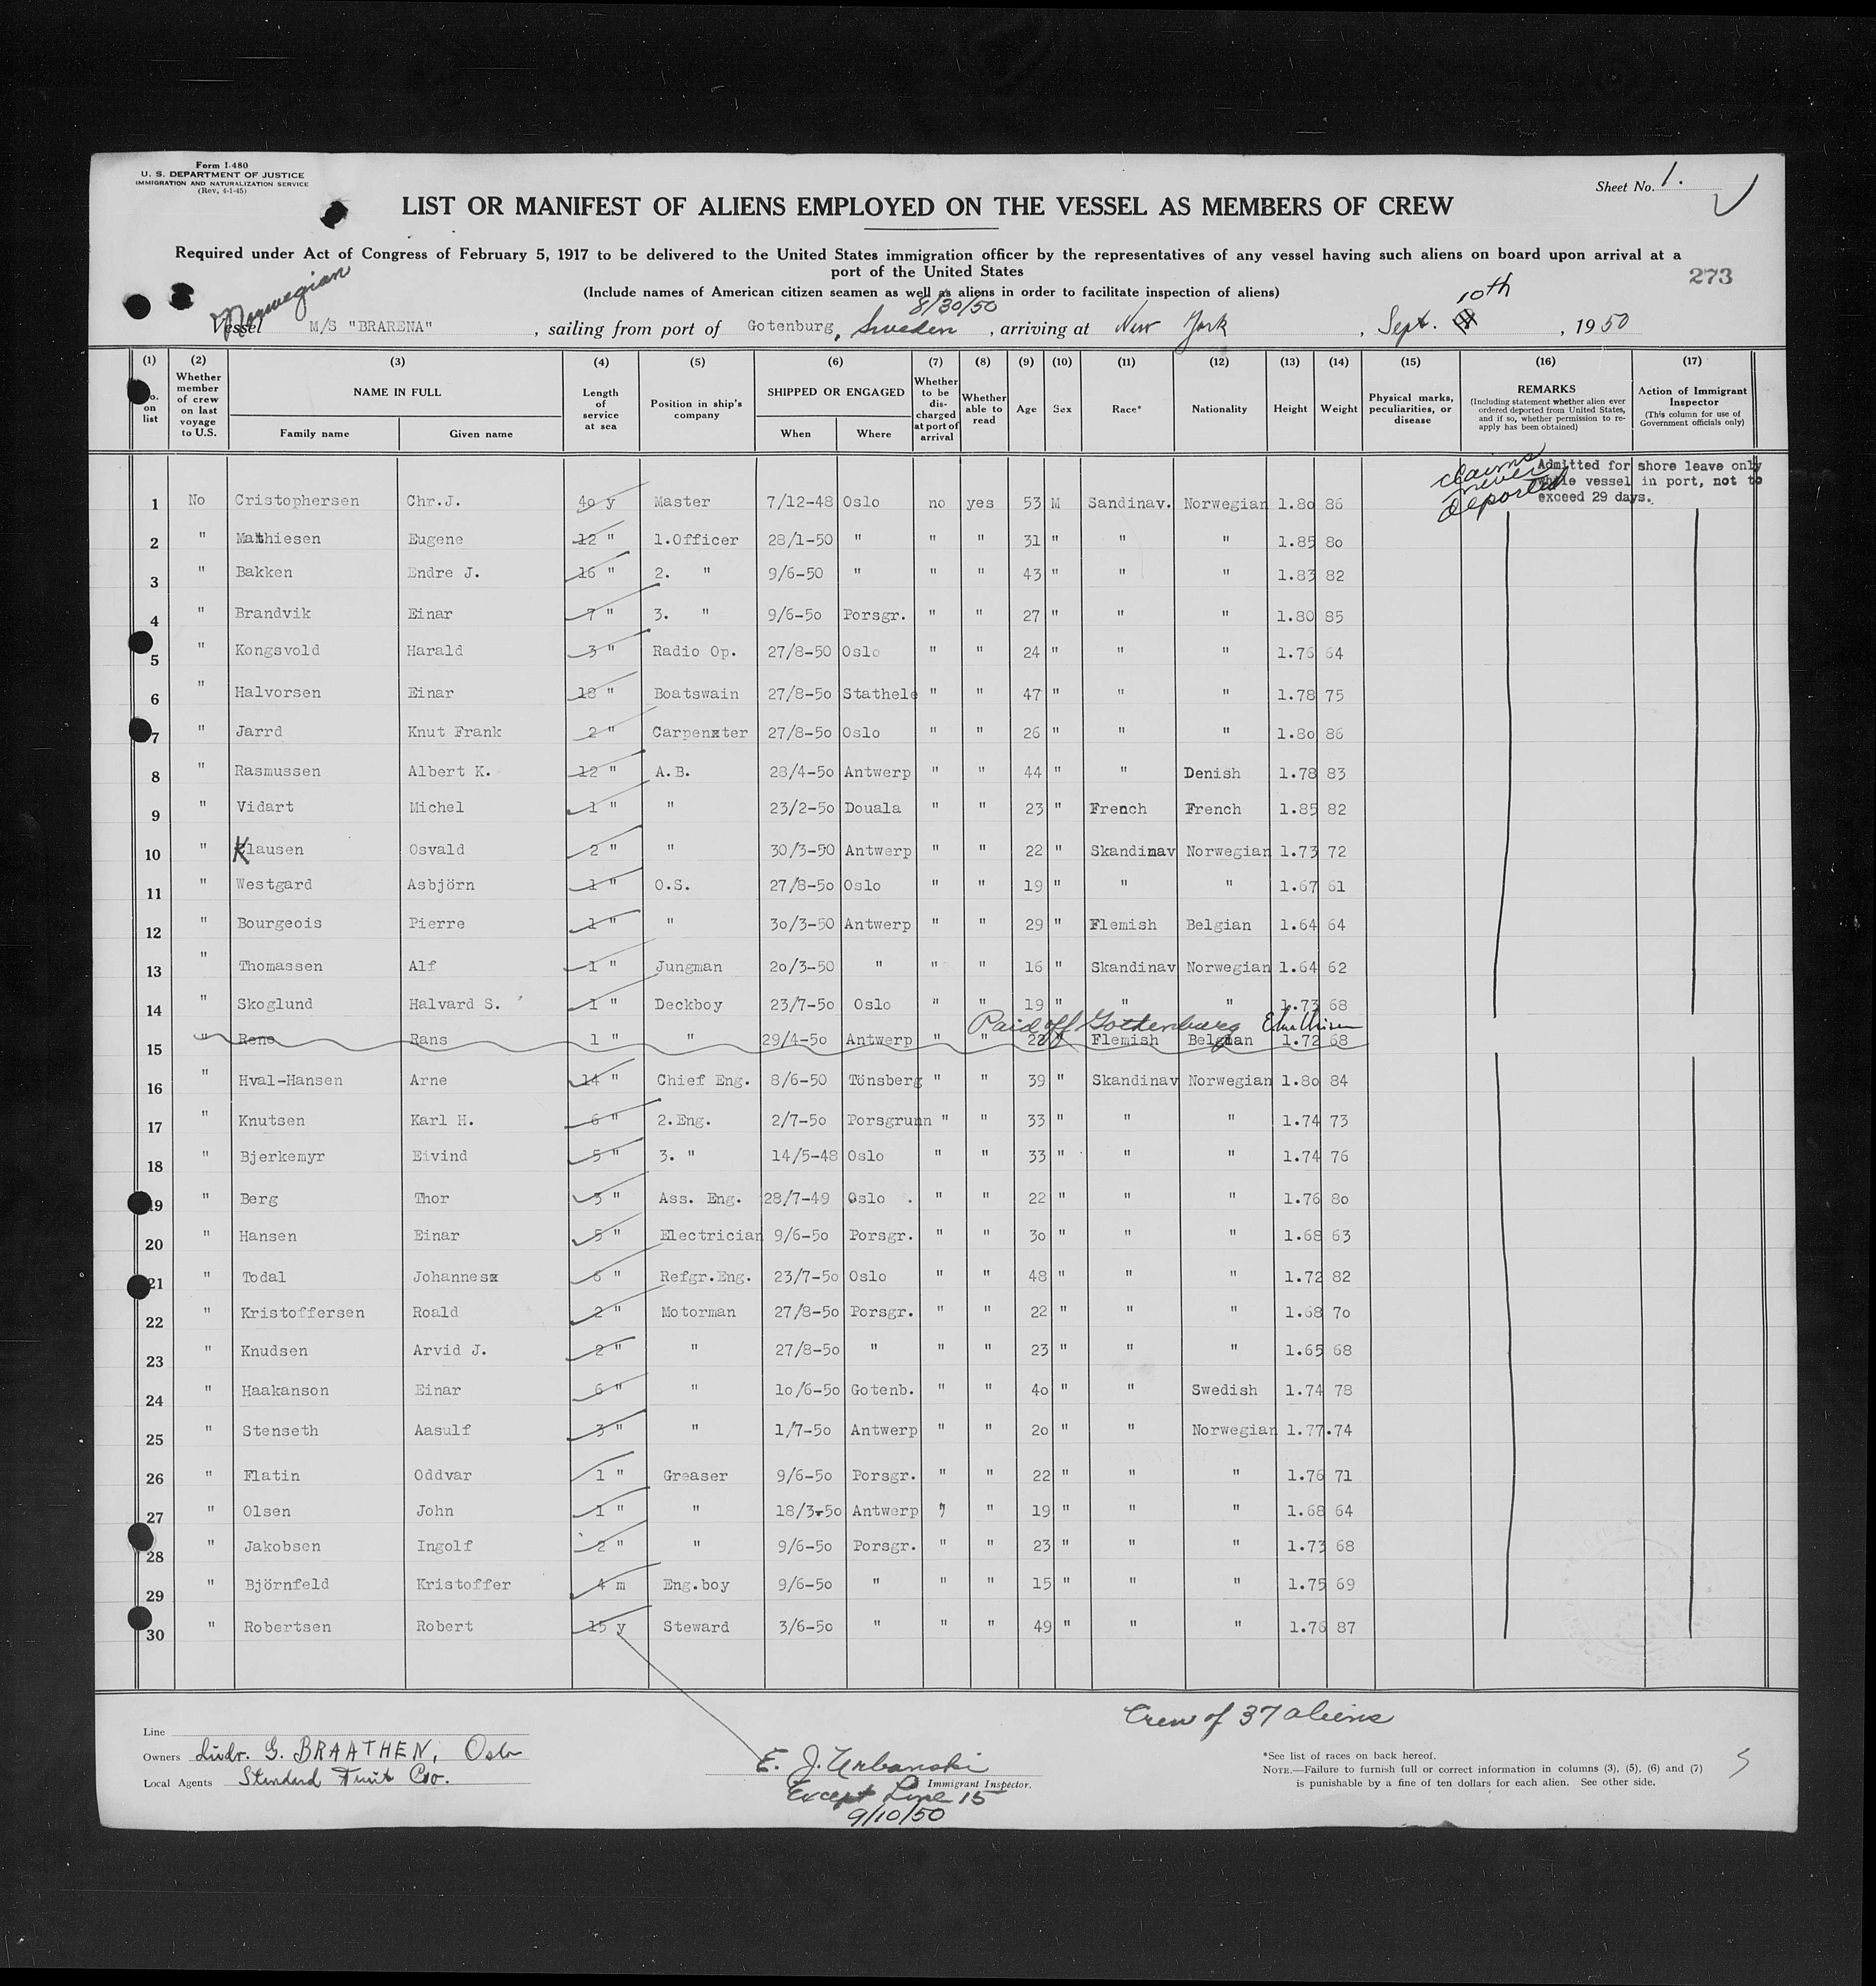 Form I-480
U. S. DEPARTMENT OF JUSTICE
IMMIGRATION AND NATURALIZATION SERVICE
(Rev. 4-1-45)
Sheet No. 1.
LIST OR MANIFEST OF ALIENS EMPLOYED ON THE VESSEL AS MEMBERS OF CREW
Required under Act of Congress of February 5, 1917 to be delivered to the United States immigration officer by the representatives of any vessel having such aliens on board upon arrival at a
port of the United States
273
(Include names of American citizen seamen as well as aliens in order to facilitate inspection of aliens)
Norwegian
8/30/50
10th
Vessel M/S "BRARENA" , sailing from port of Gotenburg, Sweden , arriving at New York , Sept. , 1950
(1) (2) (3) (4) (5) (6) (7) (8) (9) (10) (11) (12) (13) (14) (15) (16) (17)
No. on list
Whether member of crew on last voyage to U.S.
NAME IN FULL
Family name Given name
Length of service at sea
Position in ship's company
SHIPPED OR ENGAGED
When Where
Whether to be discharged at port of arrival
Whether able to read
Age
Sex
Race*
Nationality
Height
Weight
Physical marks, peculiarities, or disease
REMARKS
(Including statement whether alien ever ordered deported from United States, and if so, whether permission to reapply has been obtained)
Action of Immigrant Inspector
(This column for use of Government officials only)
claims never deported
Admitted for shore leave only
while vessel in port, not to
exceed 29 days.
1 No Cristophersen Chr.J. 4o y Master 7/12-48 Oslo no yes 53 M Sandinav. Norwegian 1.8o 86
2 " Mathiesen Eugene 12 " 1.Officer 28/1-50 " " " 31 " " " 1.85 8o
3 " Bakken Endre J. 16 " 2. " 9/6-50 " " " 43 " " " 1.83 82
4 " Brandvik Einar 7 " 3. " 9/6-5o Porsgr. " " 27 " " " 1.80 85
5 " Kongsvold Harald 3 " Radio Op. 27/8-50 Oslo " " 24 " " " 1.76 64
6 " Halvorsen Einar 18 " Boatswain 27/8-5o Stathele " " 47 " " " 1.78 75
7 " Jarrd Knut Frank 2 " Carpenxter 27/8-5o Oslo " " 26 " " " 1.8o 86
8 " Rasmussen Albert K. 12 " A.B. 28/4-5o Antwerp " " 44 " " Denish 1.78 83
9 " Vidart Michel 1 " " 23/2-5o Douala " " 23 " French French 1.85 82
10 " Klausen Osvald 2 " " 30/3-50 Antwerp " " 22 " Skandinav Norwegian 1.73 72
11 " Westgard Asbjörn 1 " O.S. 27/8-5o Oslo " " 19 " " " 1.67 61
12 " Bourgeois Pierre 1 " " 3o/3-50 Antwerp " " 29 " Flemish Belgian 1.64 64
13 " Thomassen Alf 1 " Jungman 2o/3-50 " " " 16 " Skandinav Norwegian 1.64 62
14 " Skoglund Halvard S. 1 " Deckboy 23/7-5o Oslo " " 19 " " " 1.73 68
Paid off Gothenburg
15 " Rene Rans 1 " " 29/4-5o Antwerp " " 22 " Flemish Belgian 1.72 68
16 " Hval-Hansen Arne 14 " Chief Eng. 8/6-50 Tönsberg " " 39 " Skandinav Norwegian 1.8o 84
17 " Knutsen Karl H. 6 " 2.Eng. 2/7-5o Porsgrunn " " 33 " " " 1.74 73
18 " Bjerkemyr Eivind 5 " 3. " 14/5-48 Oslo " " 33 " " " 1.74 76
19 " Berg Thor 3 " Ass. Eng. 28/7-49 Oslo " " 22 " " " 1.76 8o
20 " Hansen Einar 5 " Electrician 9/6-5o Porsgr. " " 3o " " " 1.68 63
21 " Todal Johannesx 6 " Refgr.Eng. 23/7-5o Oslo " " 48 " " " 1.72 82
22 " Kristoffersen Roald 2 " Motorman 27/8-5o Porsgr. " " 22 " " " 1.68 7o
23 " Knudsen Arvid J. 2 " " 27/8-5o " " " 23 " " " 1.65 68
24 " Haakanson Einar 6 " " 1o/6-5o Gotenb. " " 4o " " Swedish 1.74 78
25 " Stenseth Aasulf 3 " " 1/7-5o Antwerp " " 2o " " Norwegian 1.77.74
26 " Flatin Oddvar 1 " Greaser 9/6-5o Porsgr. " " 22 " " " 1.76 71
27 " Olsen John 1 " " 18/3-5o Antwerp " " 19 " " " 1.68 64
28 " Jakobsen Ingolf 2 " " 9/6-5o Porsgr. " " 23 " " " 1.73 68
29 " Björnfeld Kristoffer 4 m Eng.boy 9/6-5o " " " 15 " " " 1.75 69
30 " Robertsen Robert 15 y Steward 3/6-5o " " " 49 " " " 1.76 87
Crew of 37 aliens
Line
Owners Ludv. G. BRAATHEN, Oslo
Local Agents Standard Fruit Co.
E. J. Urbanski
Immigrant Inspector.
Except Line 15
9/10/50
*See list of races on back hereof.
NOTE.—Failure to furnish full or correct information in columns (3), (5), (6) and (7)
is punishable by a fine of ten dollars for each alien. See other side.